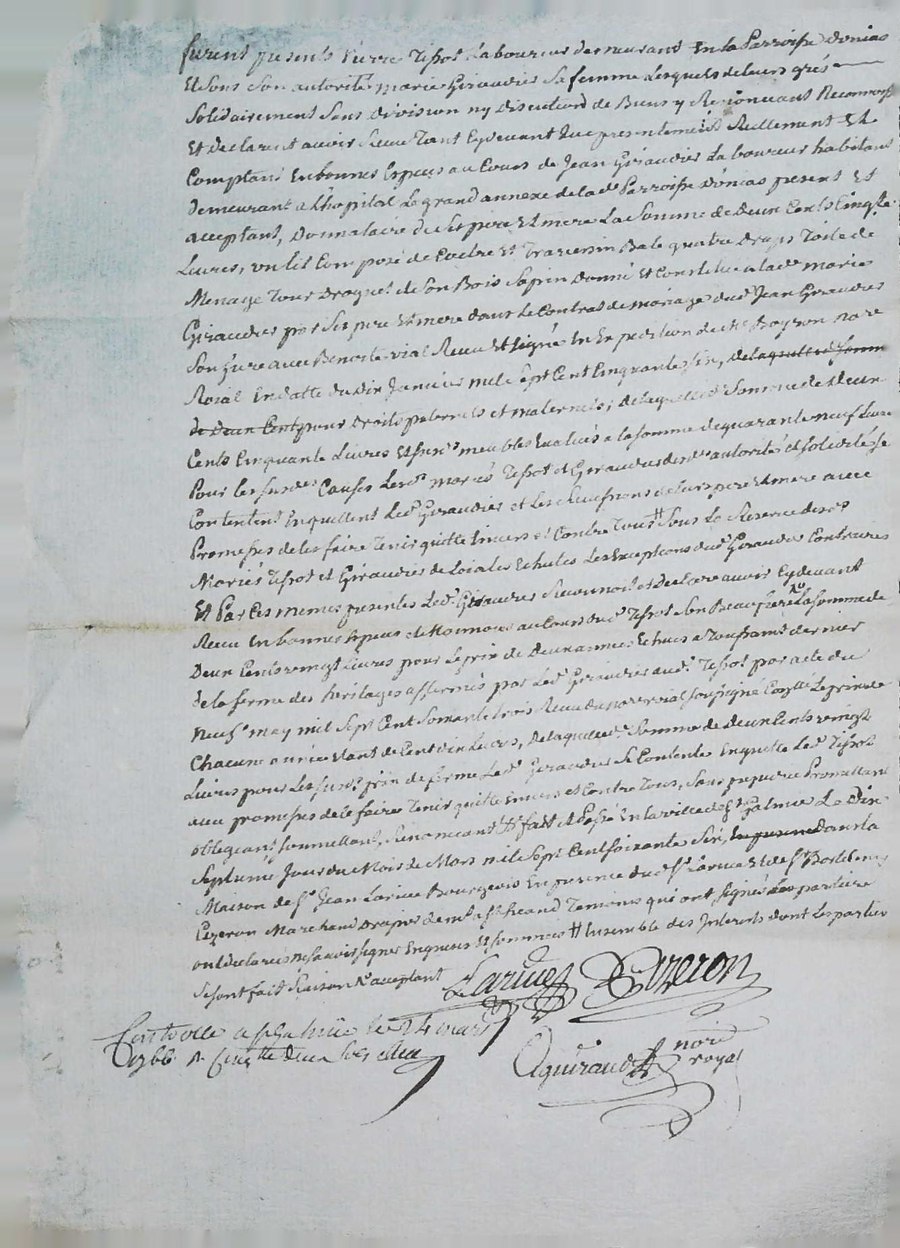 furent presents Pierre Tissot Laboureur demeurant En la Parroisse
Et sous son autorité marie Giraudier sa femme Lesquels de leurs grés
Solidairement sans division ny discution de Biens y Renoncant
Et declarent avoir Receu tant Cydevant que presentement Reellement Et
Comptant En bonnes Especes au Cours de Jean Giraudier Laboureur habitant
demeurant a L'hopital Le grand annexe de la de Parroisse present Et
acceptant, Donnataire de Ses pere Et mere La Somme de Deux Cents Cinqte
Livres, un lit Composé de Coetre Et Traversin quatre Draps Toile de
Menage Tour Droguet de Son Bois Sapin Donné Et Constitué a lade marie
Giraudier par Ses pere Et mere dans Le Contrat de mariage dud Jean Giraudier
Son frere avec Benoite vial Receu Et Signé En Expedition de Me
Roial En datte du Dix Janvier mil Sept Cent Cinquante Six,
pour Droits paternels et maternels; de laquelle Somme de Deux
Cents Cinquante Livres Et Susds meubles Evalués a la Somme de quarante neuf Livres
Pour les Susdes Causes Lesd mariés Tissot et Giraudier autorité et solidité Se
Contentent Enquittent Led Giraudier et Les de leurs pere Et mere avec
Promesses de les faire Tenir quitte Envers Et Contre Tous Sous La Reserve
Mariés Tissot et Giraudier de Loiales Echutes Les Exceptions dud Giraudier Contraires
Et Par Ces memes presentes Led Giraudier Reconnoit et declare avoir Cydevant
Receu En bonnes Especes de Monnoie au Cours dud Tissot Son Beaufrere La Somme de
Deux Cents vingt Livres pour Le prix de Deux années Echues a Toussaint dernier
de la ferme des heritages affermés par Led Giraudier aud Tissot par acte du
Neufe may mil Sept Cent Soixante trois Receu du nore roial Soussigné Le prix de
Chacune année Etant de Cent dix Livres, de laquelle Somme de Deux Cents vingt
Livres pour Les Susd prix de ferme Led Giraudier Se Contente Enquitte Led Tissot
avec promesses de le faire Tenir quitte Envers et Contre Tous, Promettant
obligeant, Soumettant, Renoncant fait Et Passé En la ville de St Galmier Le Dix
Septieme Jour du Mois de Mars mil Sept Cent Soixante Six, dans la
Maison de Sr Jean Larive Bourgeois En presence dud Sr Larive Et de Sr
Marchand Drapier Temoins qui ont Signés Les parties
ont declarés ne Scavoir Signer Enquis Et Sommés Ensemble des Interets dont Les parties
Se Sont fait Raison acceptant
Controllé a St Galmier le 24 mars
1766
nore
royal